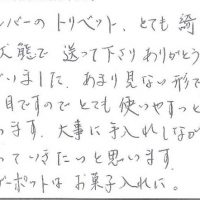 ルバーのトリベット、とても綺
状態で送って下さりありがとう
ざいました。あまり見ない形で
目ですのでとても使いやすっと
います。大事に手入れしなが
っていきたいと思います。
ガーポットはお菓子入れに。